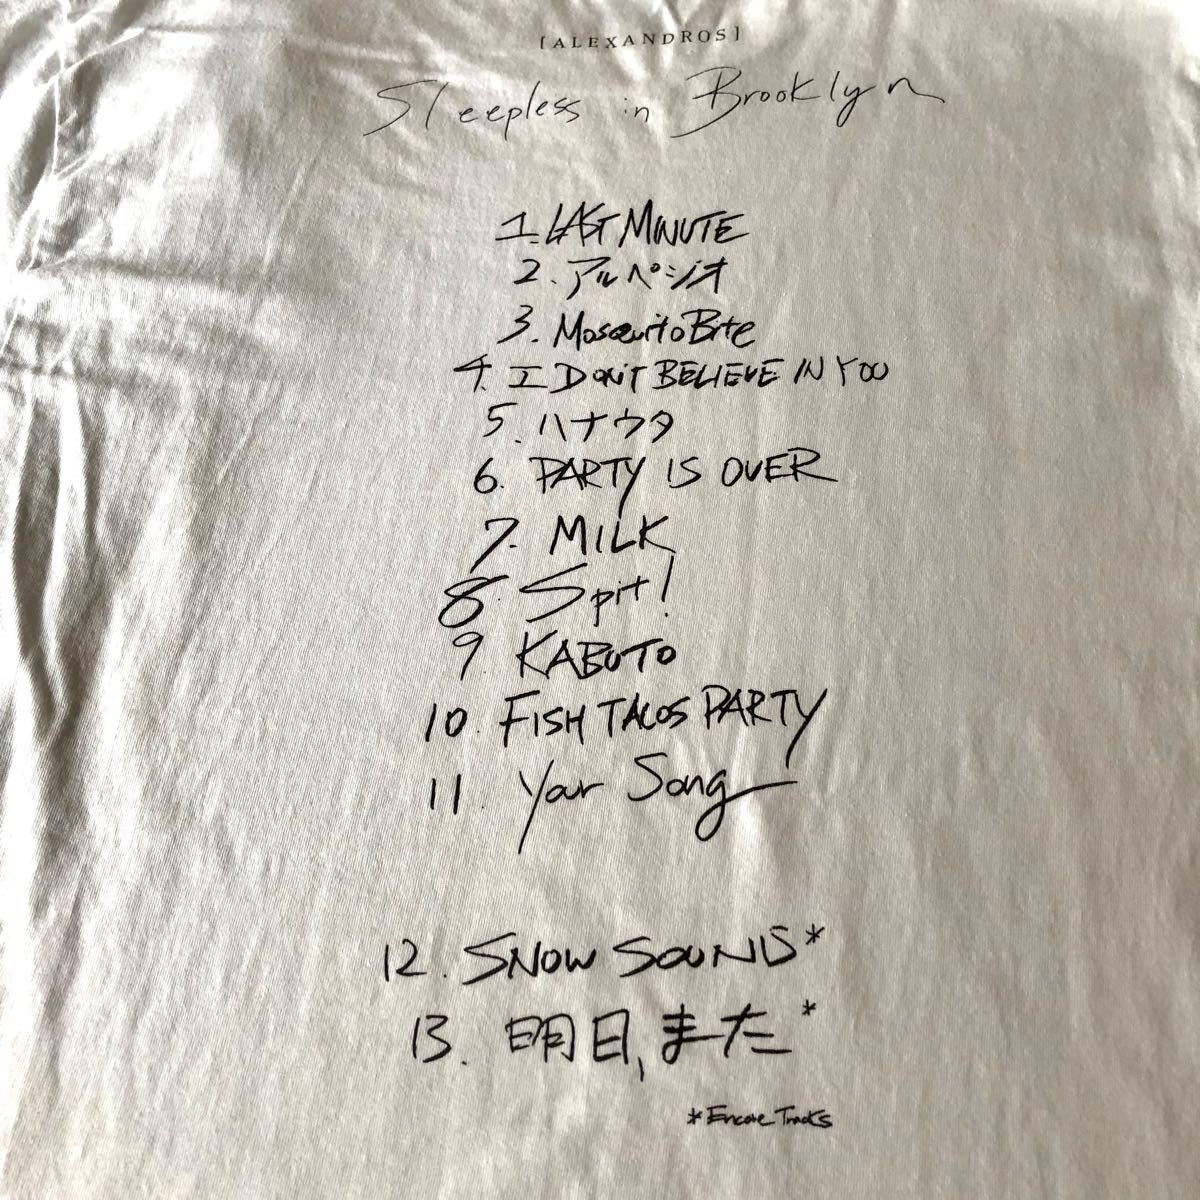 [ALEXANDROS]
Sleepless in Brooklyn
1. LAST MINUTE
2. アルペジオ
3. Mosquito Bite
4. I DON'T BELIEVE IN YOU
5. ハナウタ
6. PARTY IS OVER
7. MILK
8 Spit!
9 KABUTO
10. FISH TACOS PARTY
11. Your Song
12. SNOW SOUND*
13. 明日, また*
*Encore Tracks